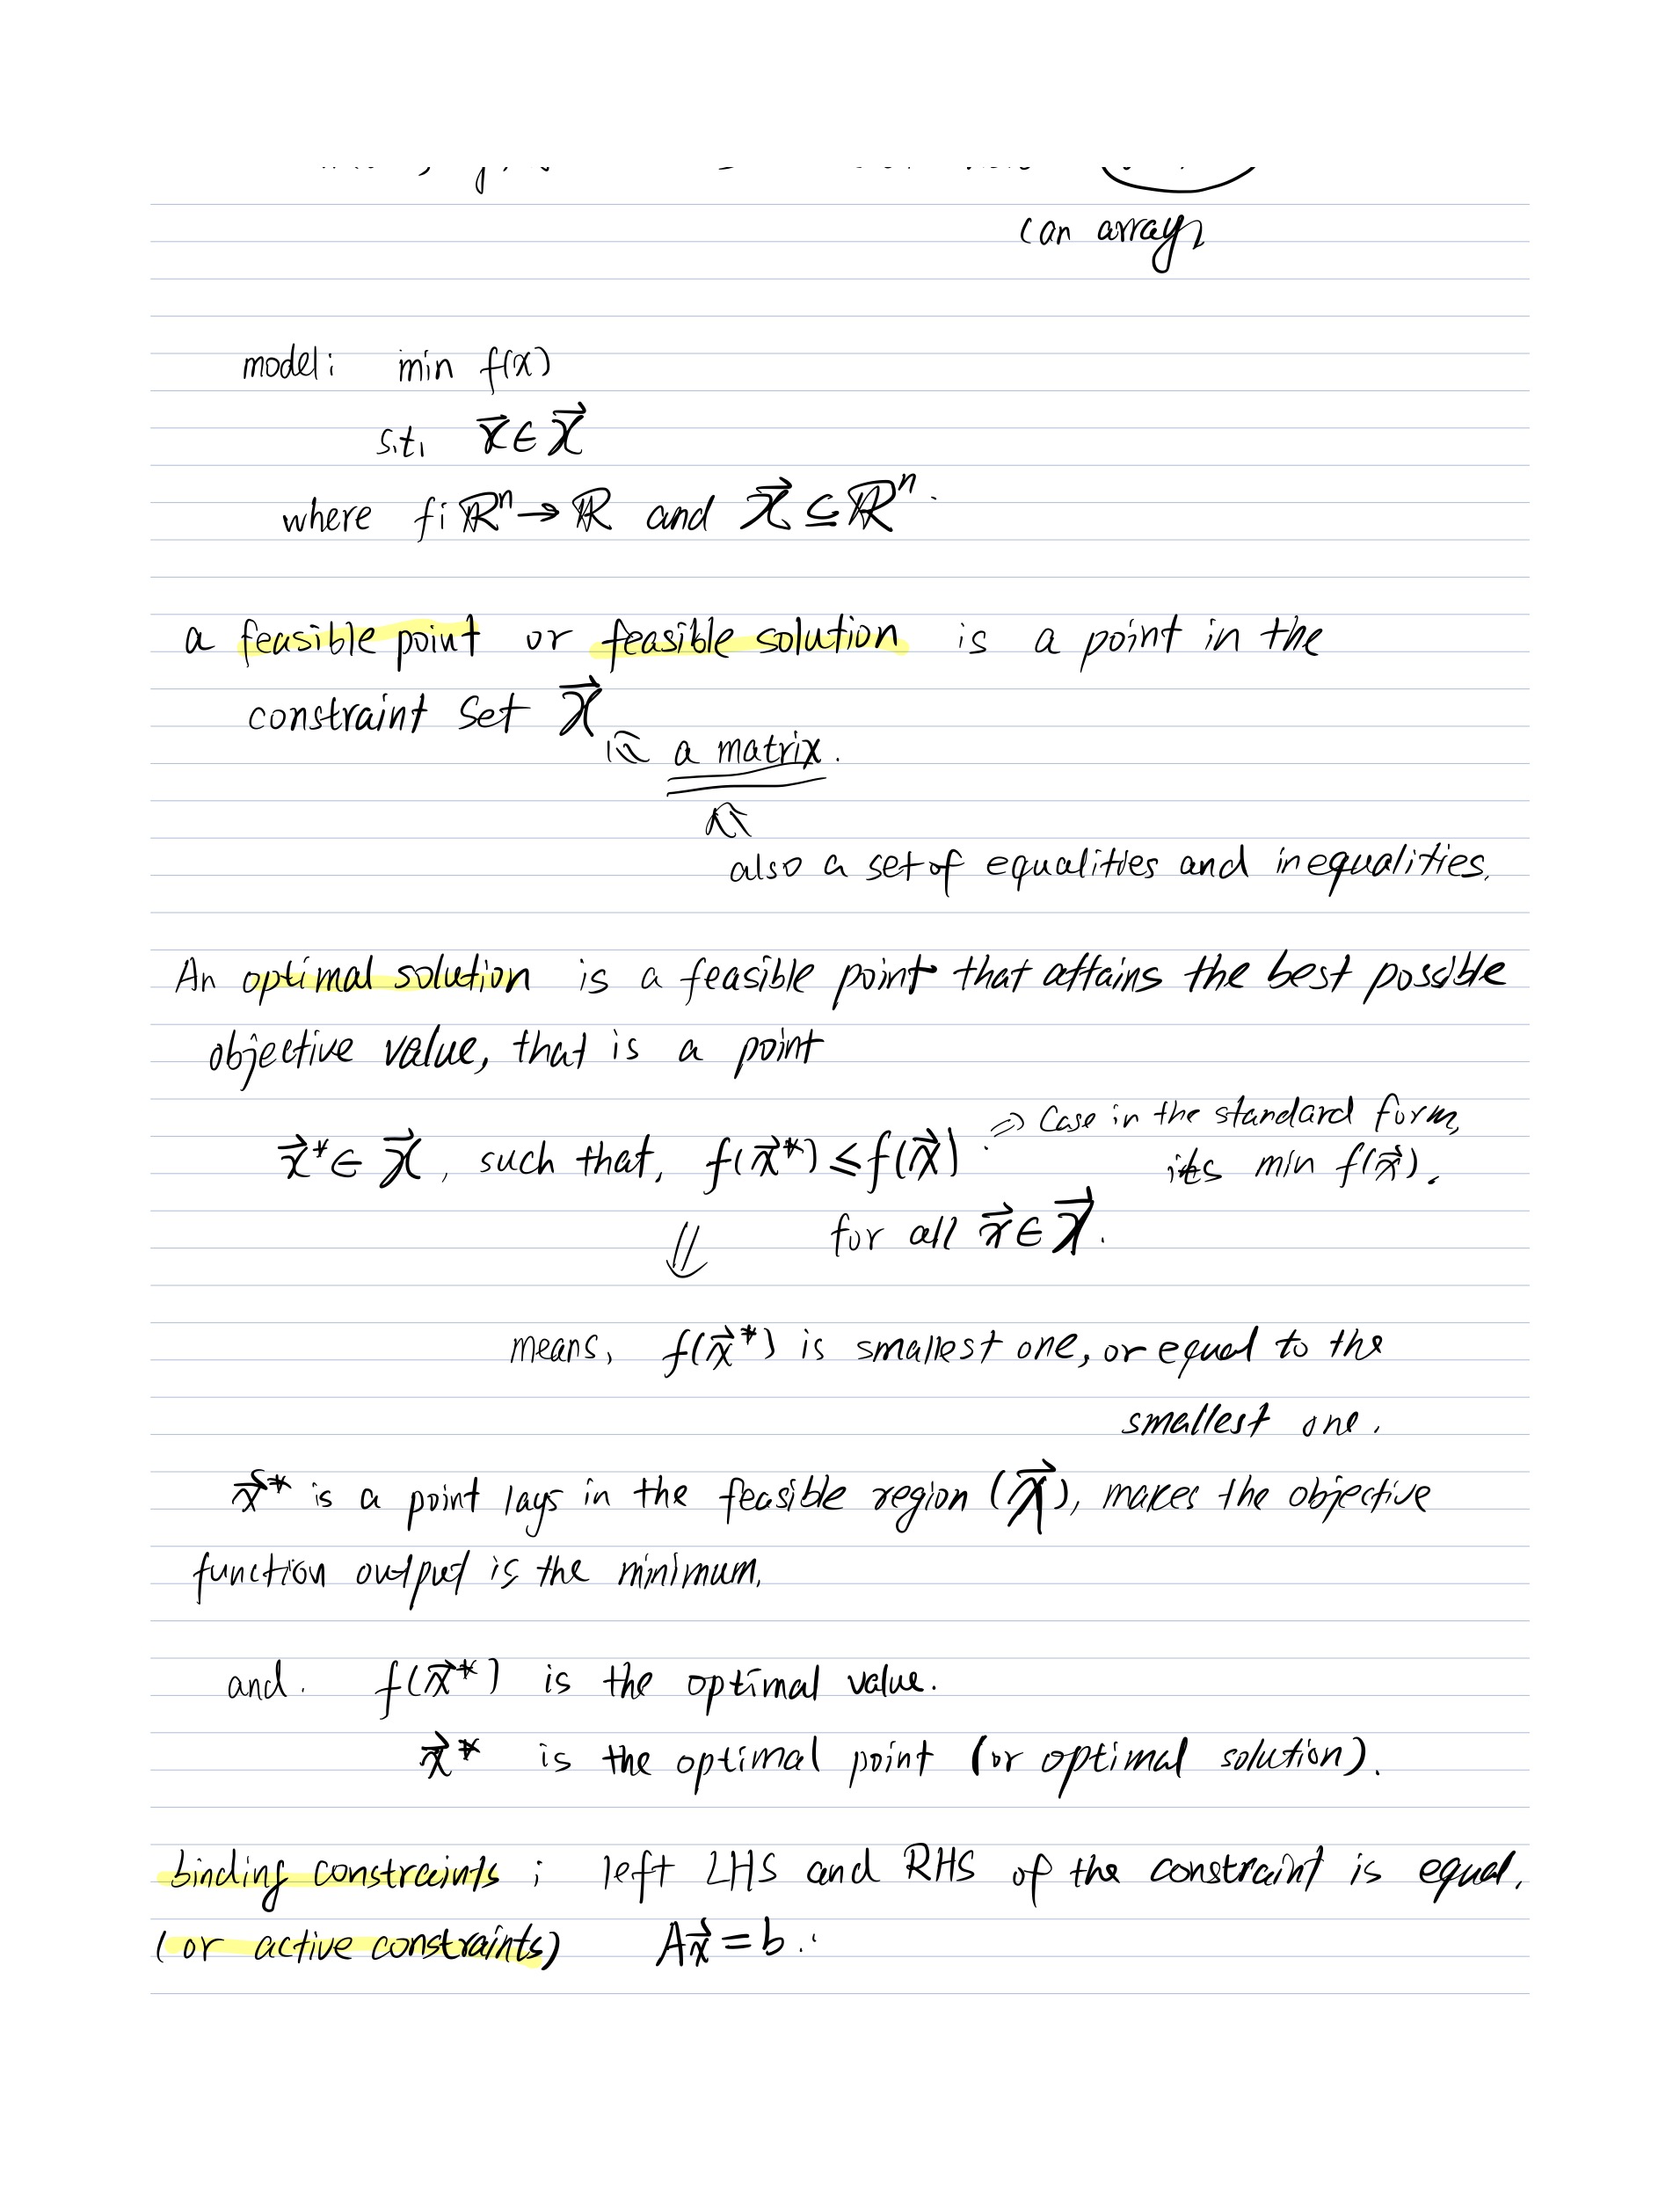 (an array)
model: min f(x)
s.t. x⃗ ∈ X⃗
where f: ℝⁿ → ℝ and X⃗ ⊆ ℝⁿ.
a feasible point or feasible solution is a point in the
constraint set X⃗
⇖ a matrix.
⇖
also a set of equalities and inequalities.
An optimal solution is a feasible point that attains the best possible
objective value, that is a point
⇒ Case in the standard form,
x⃗* ∈ X⃗, such that, f(x⃗*) ≤ f(x⃗). its min f(x⃗).
⇓ for all x⃗ ∈ X⃗.
means, f(x⃗*) is smallest one, or equal to the
smallest one.
x⃗* is a point lays in the feasible region (X⃗), makes the objective
function output is the minimum.
and. f(x⃗*) is the optimal value.
x⃗* is the optimal point (or optimal solution).
binding constraints: left LHS and RHS of the constraint is equal.
(or active constraints) Ax⃗ = b.